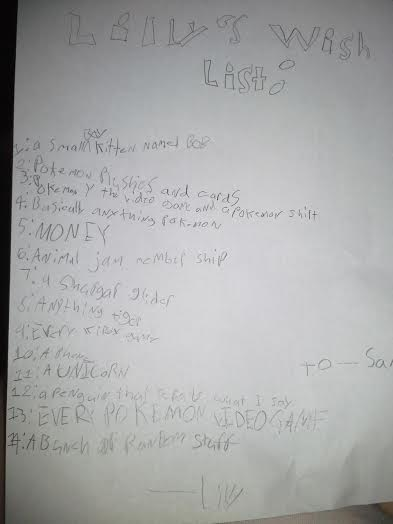 Lilly's Wish
List:
Boy
1: a small kitten named BOB
2: Pokemon Plushies
3: Pokemon Y the video Game and cards and a pokemon shirt
4: Basically anything Pokemon
5: MONEY
6: Animal jam member ship
7: a Shugar glider
8: Anything tiger
9: Every game
10: A
11: A UNICORN
12: a penguin that what I say
13: EVERY POKEMON VIDEO GAME
14: A Bunch of Random stuff
to — San
— Lily